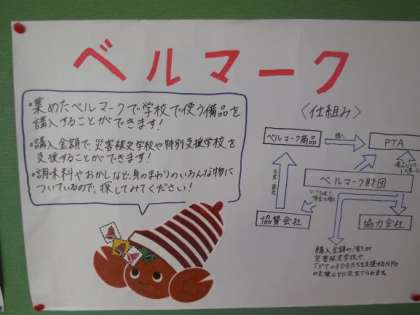 ベルマーク
・集めたベルマークで学校で使う備品を
購入することができます!
・購入金額で、災害被災学校や特別支援学校を
支援することができます!
・調味料やおかしなど、身のまわりのいろんな物に
ついているので、探してみてください!
〈仕組み〉
ベルマーク商品
PTA
ベルマーク財団
協賛会社
協力会社
購入金額の1割が
災害被災学校や